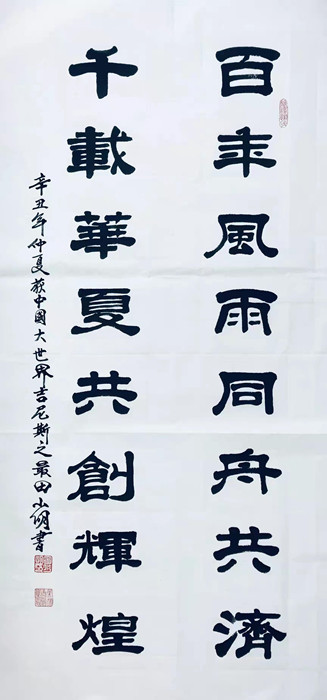 百年風雨同舟共濟
千載華夏共創輝煌
辛丑年仲夏获中國大世界吉尼斯之最田小明書